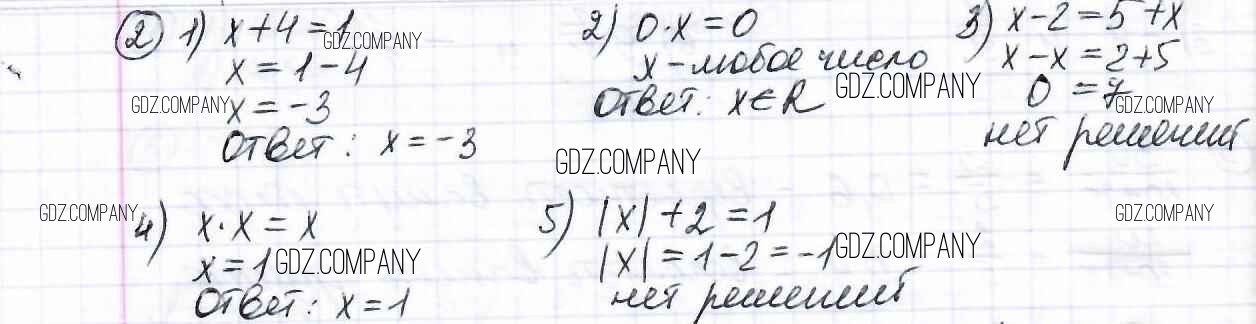 2) 1) x+4=1 GDZ.COMPANY
x=1-4
GDZ.COMPANY x=-3
Ответ: x=-3
2) 0·x=0
x-любое число
Ответ: x∈R GDZ.COMPANY
3) x-2=5+x
x-x=2+5
0=7 GDZ.COMPANY
нет решений
GDZ.COMPANY
GDZ.COMPANY 4) x·x=x
x=1 GDZ.COMPANY
Ответ: x=1
5) |x|+2=1
|x|=1-2=-1 GDZ.COMPANY
нет решений
GDZ.COMPANY